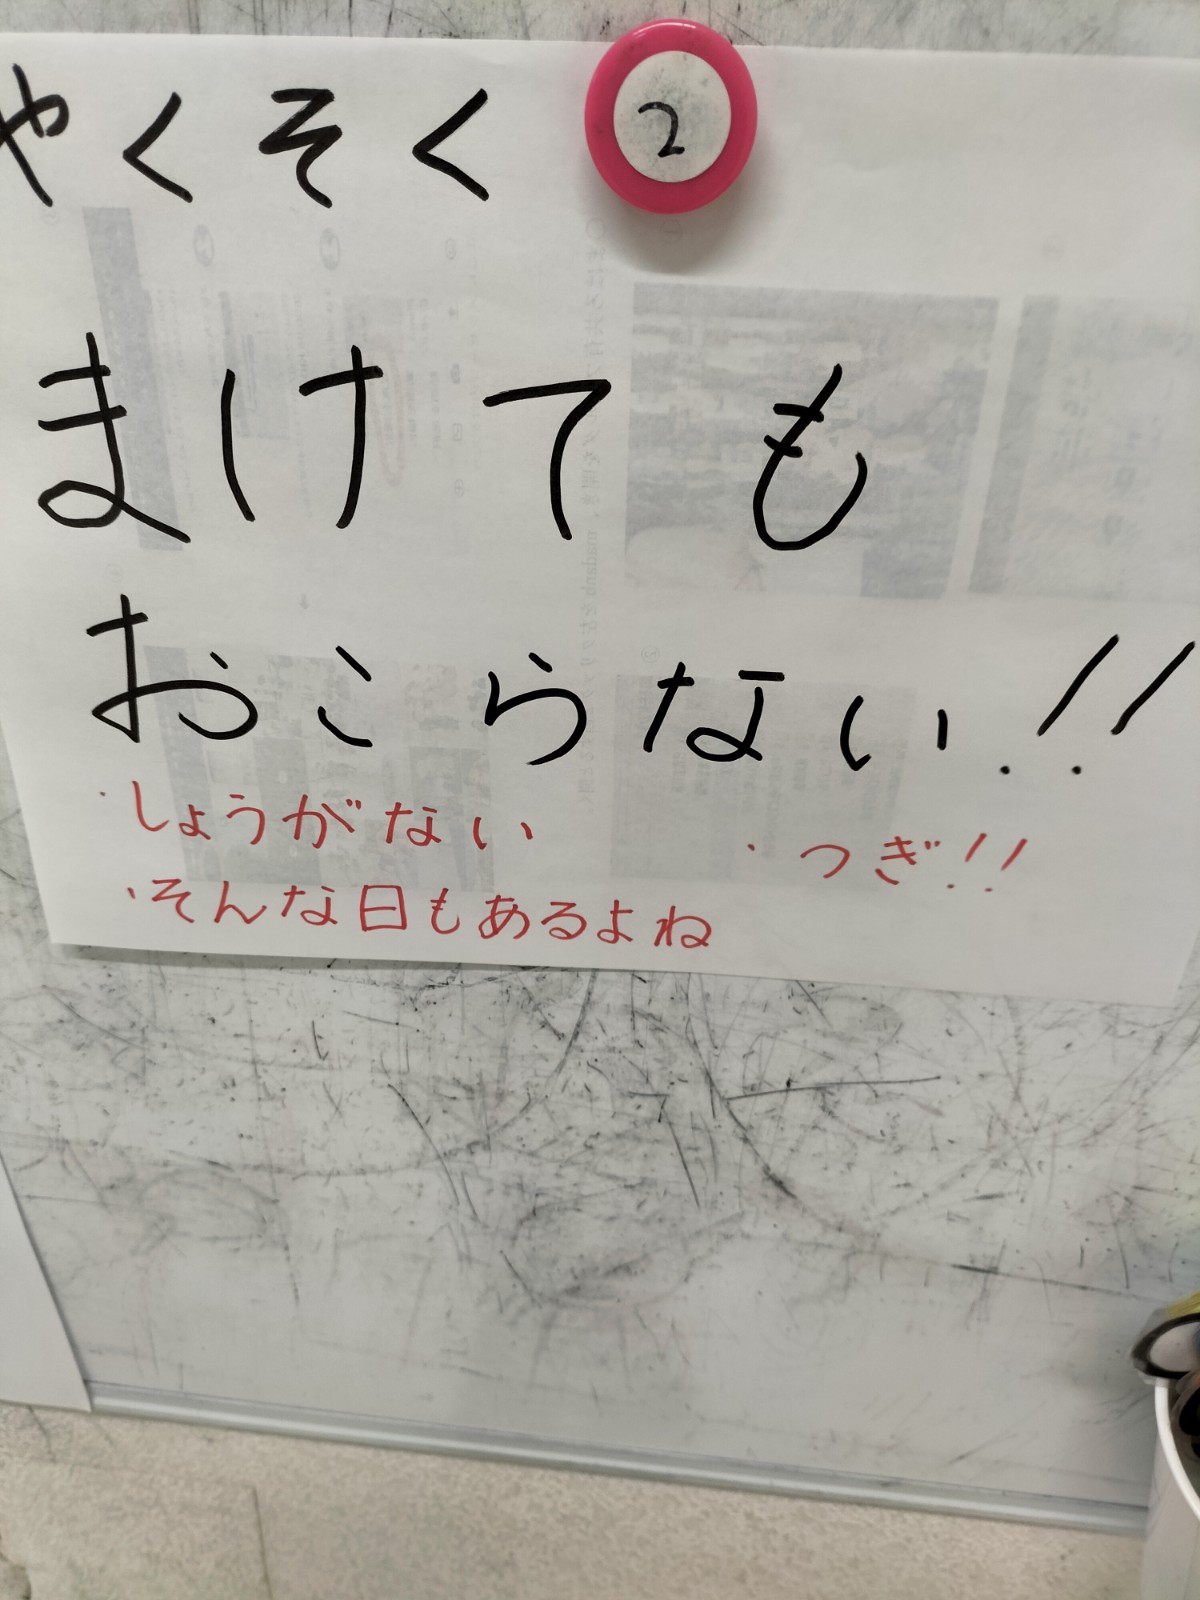 やくそく
2
まけても
おこらない!!
・しょうがない
・つぎ!!
・そんな日もあるよね